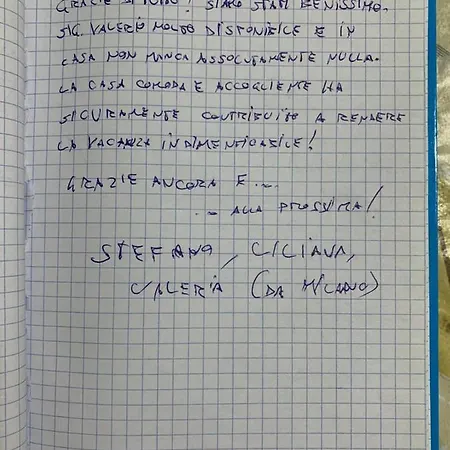 GRAZIE DI TUTTO! SIAMO STATI BENISSIMO.
SIG. VALERIO MOLTO DISPONIBILE E IN
CASA NON MANCA ASSOLUTAMENTE NULLA.
LA CASA COMODA E ACCOGLIENTE HA
SICURAMENTE CONTRIBUITO A RENDERE
LA VACANZA INDIMENTICABILE!
GRAZIE ANCORA E ...
... ALLA PROSSIMA!
STEFANO, LILIANA,
VALERIA (DA MILANO)